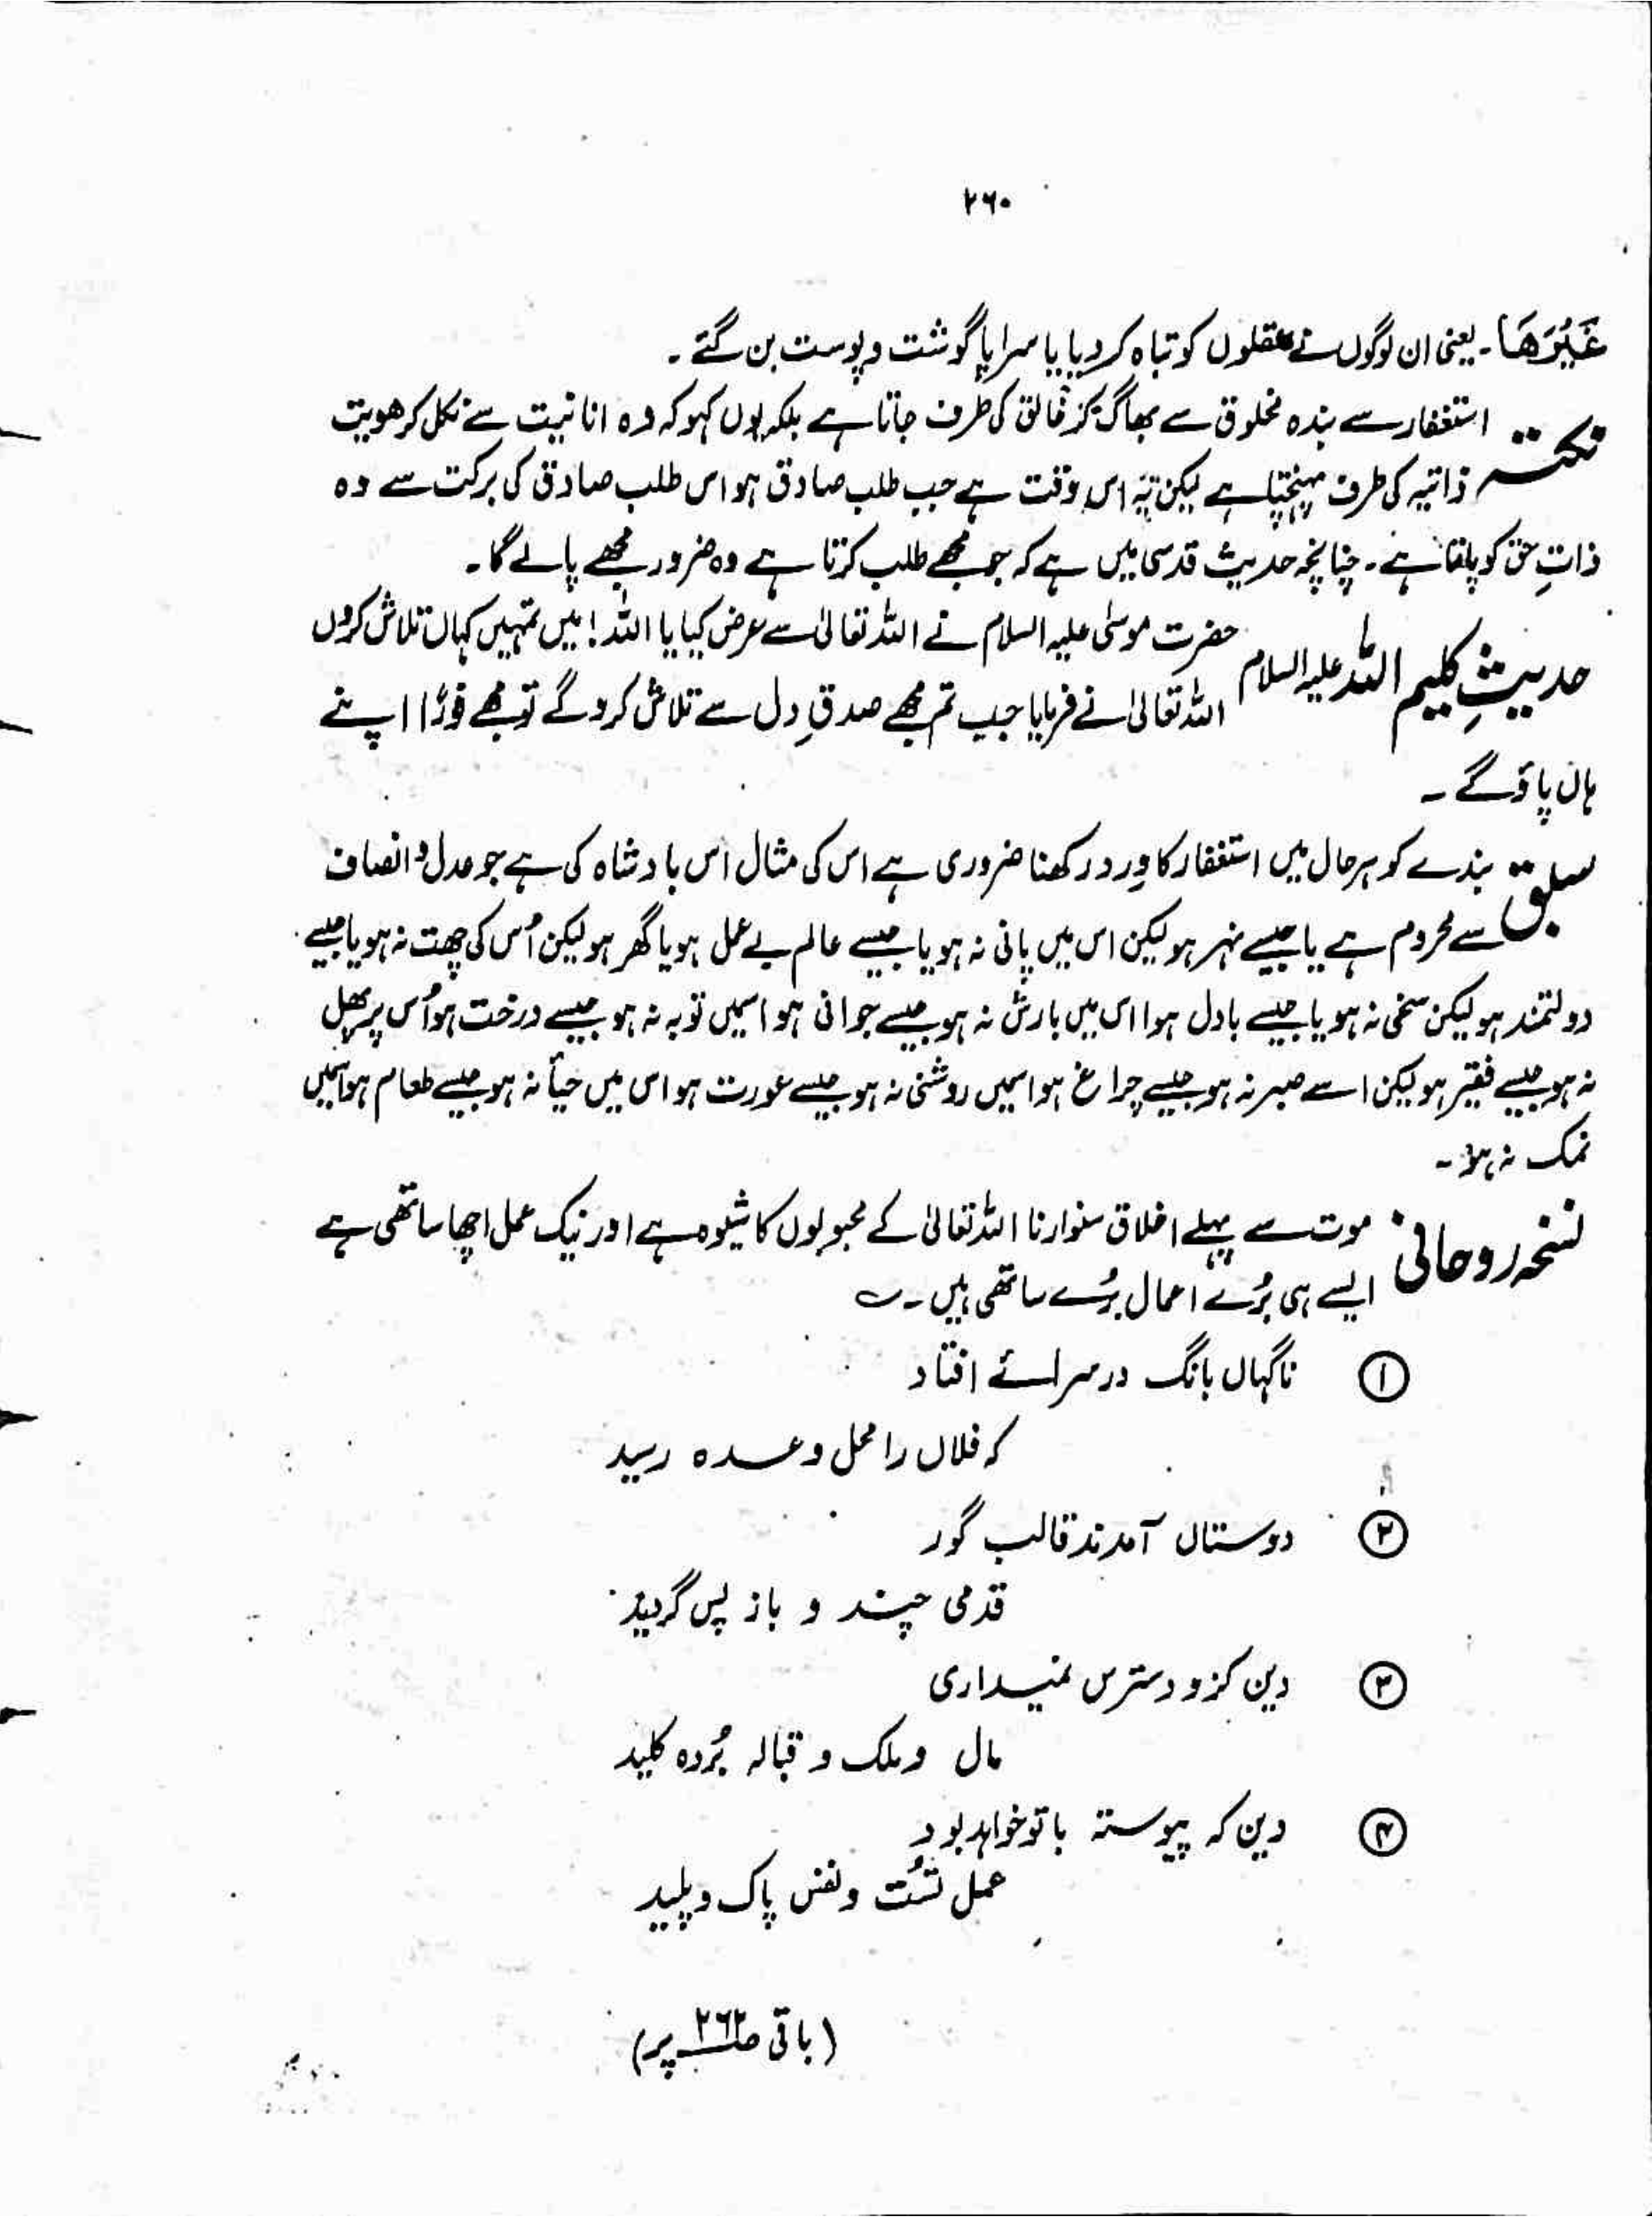 ۲۶۰
غَیْرَھَا۔ یعنی ان لوگوں نے عقلوں کو تباہ کر دیا یا سراپا گوشت و پوست بن گئے ۔
نکتہ استغفار سے بندہ مخلوق سے بھاگ کر خالق کی طرف جاتا ہے بلکہ یوں کہو کہ وہ انانیت سے نکل کر ھویت
ذاتیہ کی طرف پہنچتا ہے لیکن یہ اس وقت ہے جب طلب صادق ہو اس طلب صادق کی برکت سے وہ
ذاتِ حق کو پلتا ہے ۔ چنانچہ حدیث قدسی میں ہے کہ جو مجھے طلب کرتا ہے وہ ضرور مجھے پالے گا ۔
حدیثِ کلیم اللہ علیہ السلام حضرت موسیٰ علیہ السلام نے اللہ تعالیٰ سے عرض کیا یا اللہ! میں تمہیں کہاں تلاش کروں
اللہ تعالیٰ نے فرمایا جب تم مجھے صدقِ دل سے تلاش کرو گے تو مجھے فوراً اپنے
ہاں پاؤ گے ۔
سبق بندے کو ہر حال میں استغفار کا وِرد رکھنا ضروری ہے اس کی مثال اس بادشاہ کی ہے جو عدل و انصاف
سے محروم ہے یا جیسے نہر ہو لیکن اس میں پانی نہ ہو یا جیسے عالم بے عمل ہو یا گھر ہو لیکن اُس کی چھت نہ ہو یا جیسے
دولتمند ہو لیکن سخی نہ ہو یا جیسے بادل ہوا اس میں بارش نہ ہو جیسے جوانی ہو اسمیں توبہ نہ ہو جیسے درخت ہو اُس پر پھل
نہ ہو جیسے فقیر ہو لیکن اسے صبر نہ ہو جیسے چراغ ہو اسمیں روشنی نہ ہو جیسے عورت ہو اس میں حیأ نہ ہو جیسے طعام ہو اسمیں
نمک نہ ہو ۔
نسخہ روحانی موت سے پہلے اخلاق سنوارنا اللہ تعالیٰ کے محبوبوں کا شیوہ ہے اور نیک عمل اچھا ساتھی ہے
ایسے ہی بُرے اعمال بُرے ساتھی ہیں ۔ ؎
① ناگہاں بانگ در سرائے افتاد
کہ فلاں را محل وعدہ رسید
② دوستاں آمدند قالب گور
قدمی چند و باز پس گردید
③ دین کزو دسترس نمیداری
مال و ملک و قبالہ بُردہ کلید
④ دین کہ پیوستہ با تو خواہد بود
عمل تُست و نفس پاک و پلید
(باقی صـ ۲۶۲ پر)